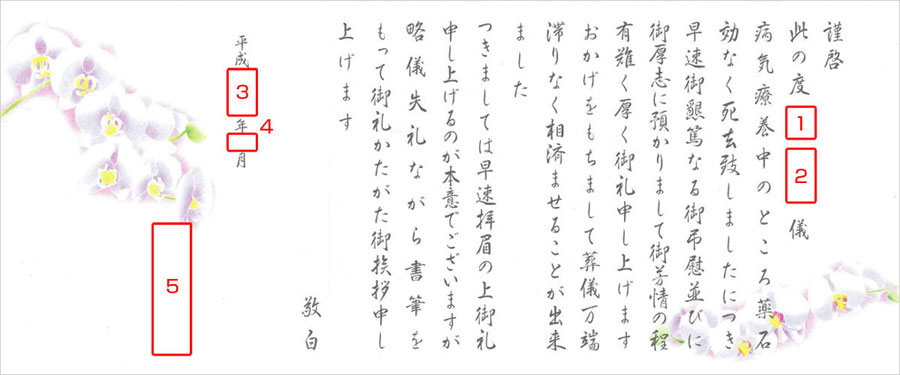 謹啓
此の度 1 2 儀
病気療養中のところ薬石
効なく死去致しましたにつき
早速御懇篤なる御弔慰並びに
御厚志に預かりまして御芳情の程
有難く厚く御礼申し上げます
おかげをもちまして葬儀万端
滞りなく相済ませることが出来
ました
つきましては早速拝眉の上御礼
申し上げるのが本意でございますが
略儀失礼ながら書筆を
もって御礼かたがた御挨拶申し
上げます
敬白
平成 3 年 4 月
5